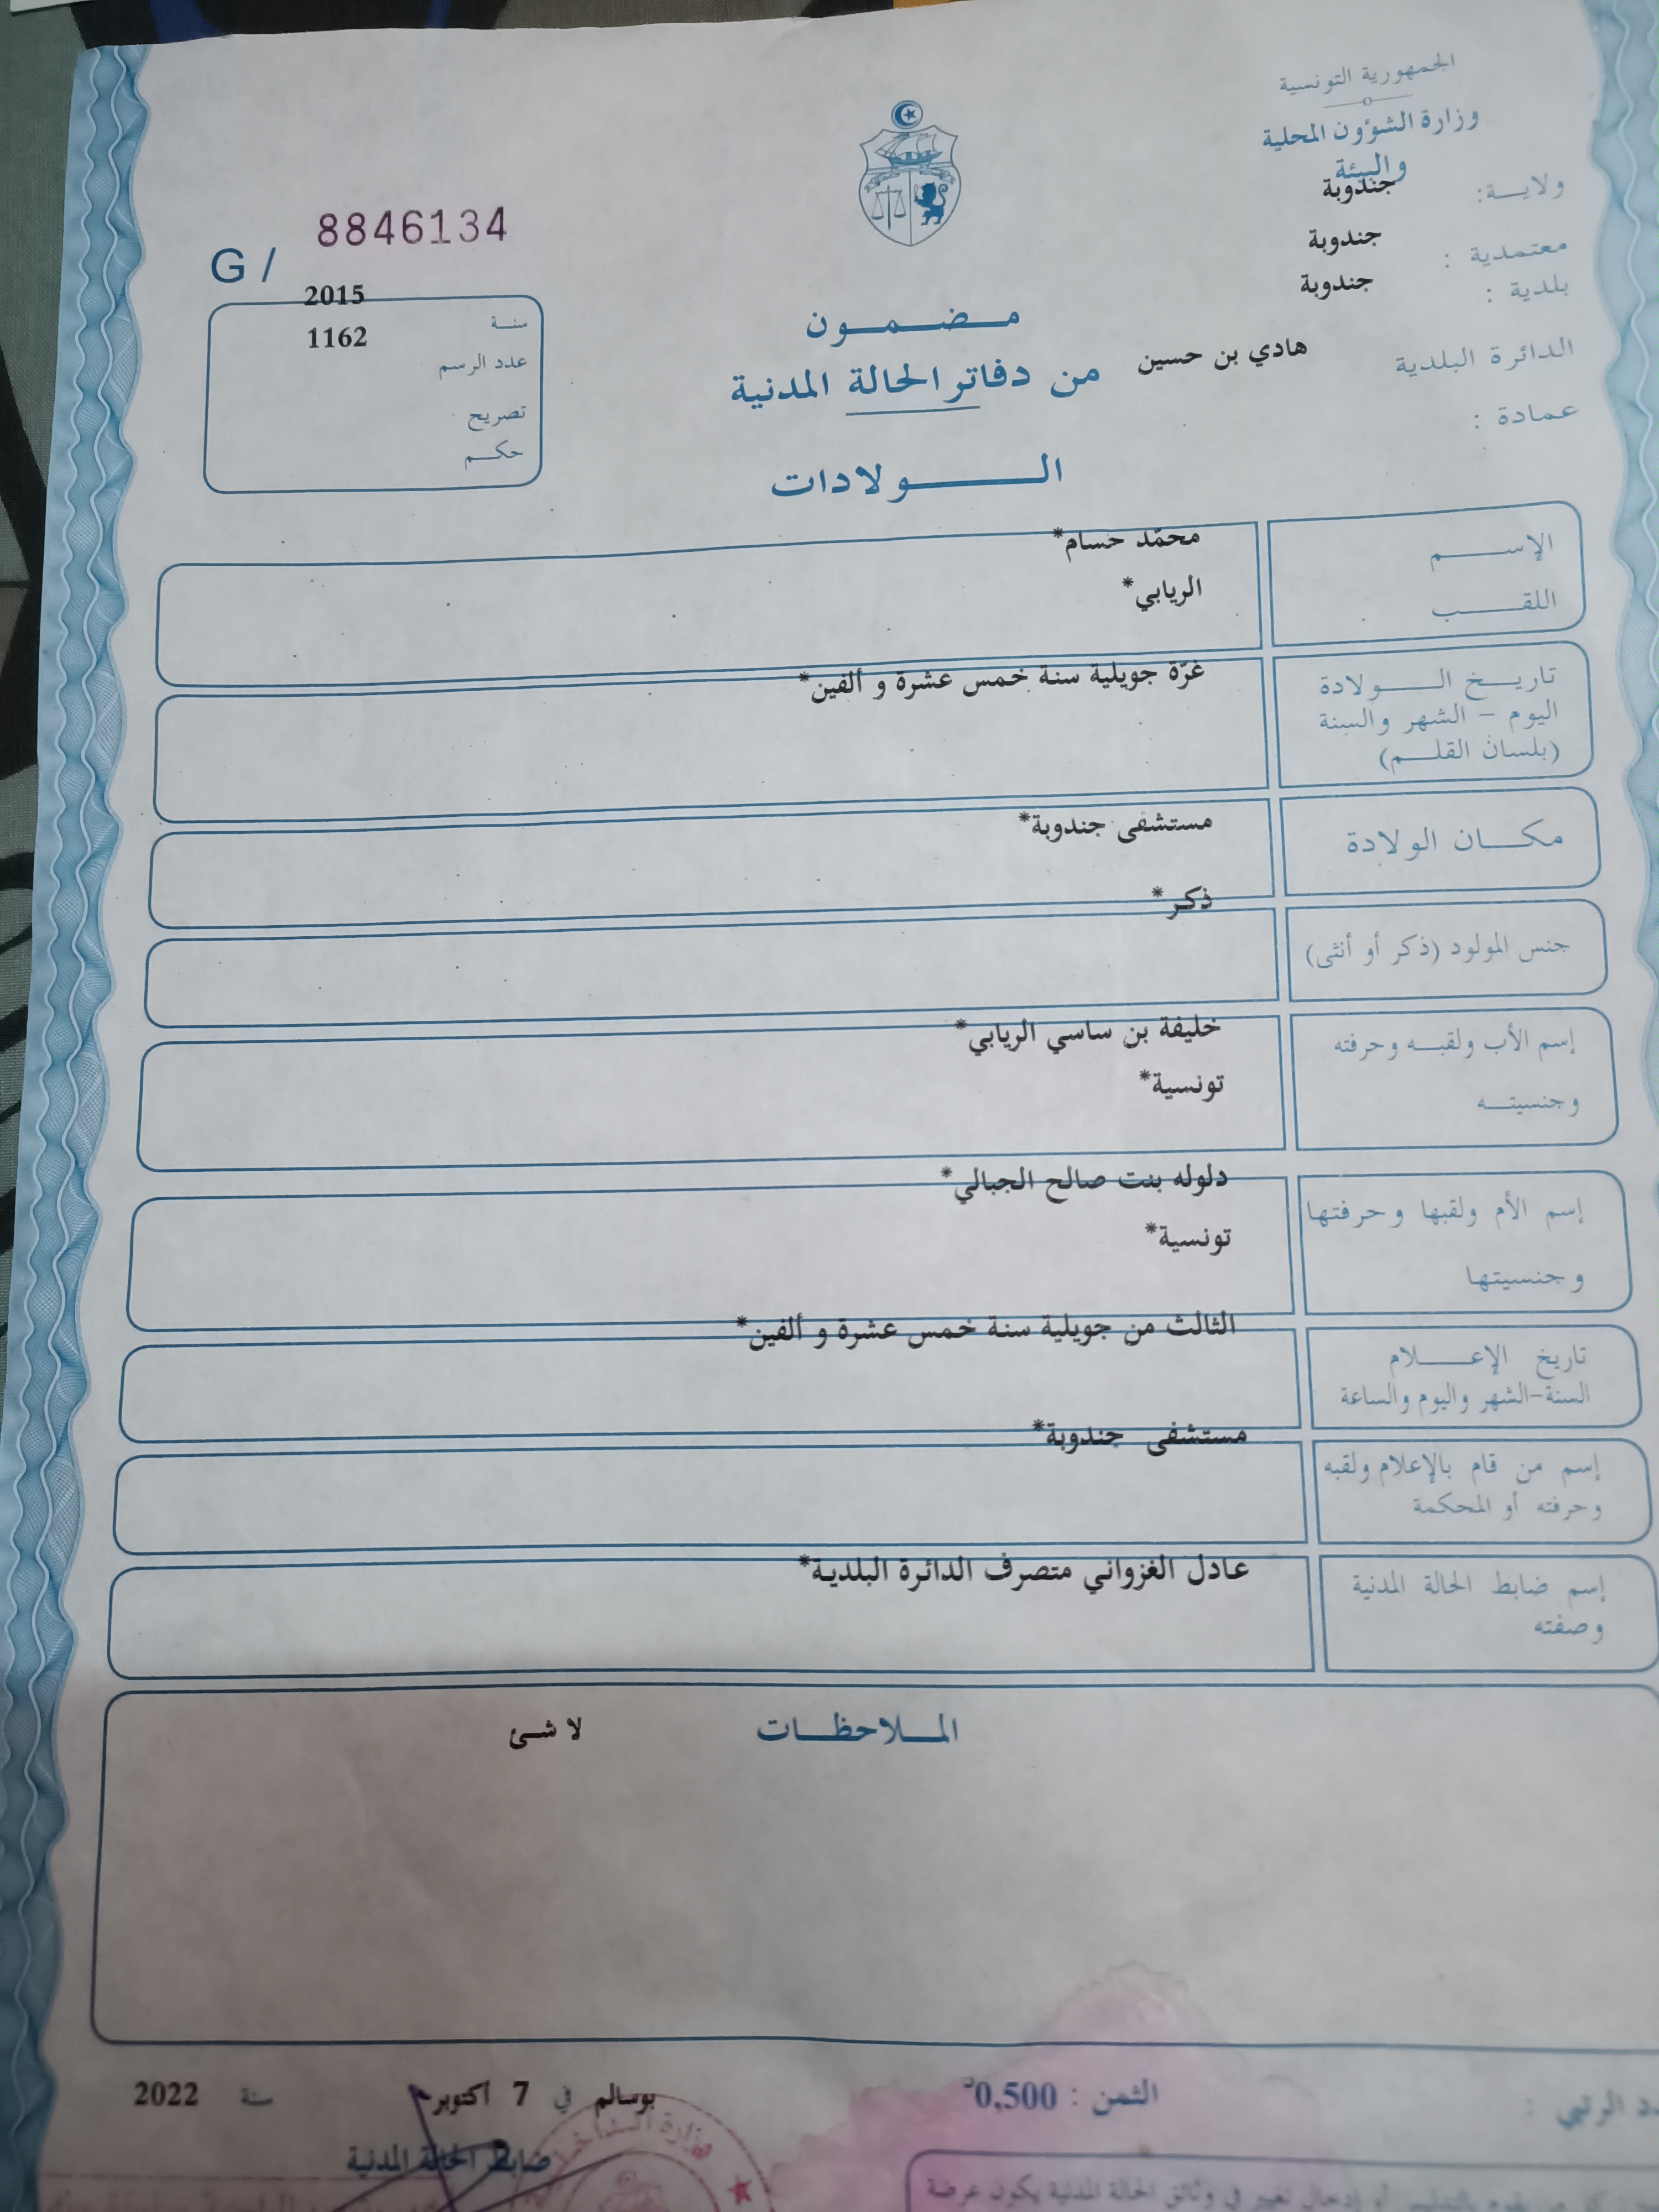 الجمهورية التونسية
وزارة الشؤون المحلية
والبيئة
ولايـــة: جندوبة
معتمدية : جندوبة
بلدية : جندوبة
الدائرة البلدية هادي بن حسين
عمادة :
G / 8846134
سنـة 2015
عدد الرسم 1162
تصريح
حكـــم
مـــضـــمـــون
من دفاتر الحالة المدنية
الـــــــولادات
الإســـــــم محمّد حسام*
اللقـــــــب الريابي*
تاريـــخ الـــــولادة غرّة جويلية سنة خمس عشرة و ألفين*
اليوم - الشهر والسنة
(بلسان القلـــم)
مكـــان الولادة مستشفى جندوبة*
جنس المولود (ذكر أو أنثى) ذكر*
إسم الأب ولقبـــه وحرفته خليفة بن ساسي الريابي*
وجنسيتـــه تونسية*
إسم الأم ولقبها وحرفتها دلوله بنت صالح الجبالي*
وجنسيتها تونسية*
تاريخ الإعـــــلام الثالث من جويلية سنة خمس عشرة و ألفين*
السنة-الشهر واليوم والساعة
إسم من قام بالإعلام ولقبه مستشفى جندوبة*
وحرفته أو المحكمة
إسم ضابط الحالة المدنية عادل الغزواني متصرف الدائرة البلدية*
وصفته
المـــلاحظـــات لا شئ
الرتبي :
الثمن : 0,500د
بوسالم في 7 أكتوبر سنة 2022
ضابط الحالة المدنية
وزارة الداخلية
أو إدخال تغيير في وثائق الحالة المدنية يكون عرضة